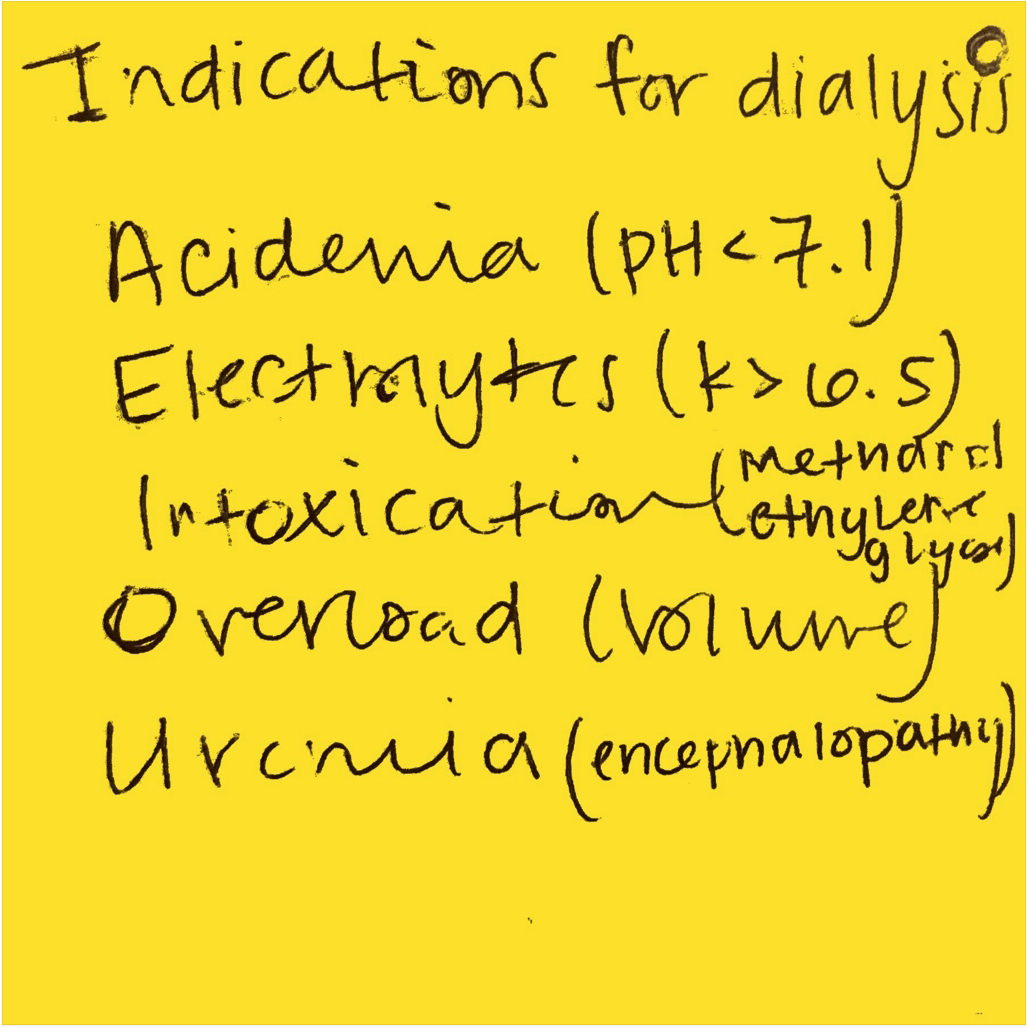 Indications for dialysis
Acidemia (pH < 7.1)
Electrolytes (K > 6.5)
Intoxication (methanol
ethylene
glycol)
Overload (volume)
Uremia (encephalopathy)